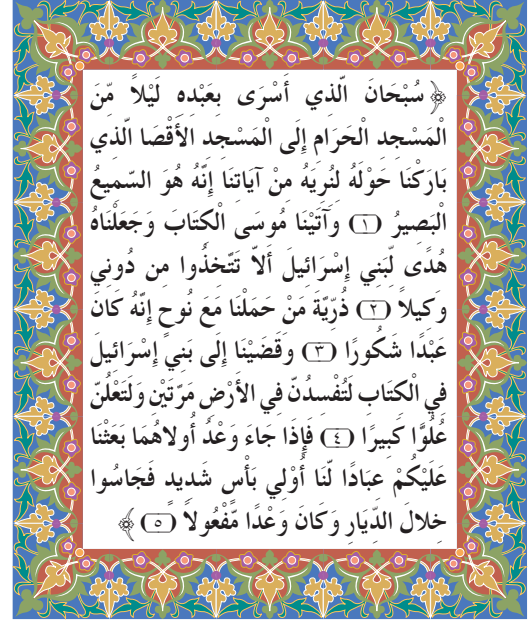 ﴿ سُبْحَانَ الَّذِي أَسْرَى بِعَبْدِهِ لَيْلاً مِّنَ
الْمَسْجِدِ الْحَرَامِ إِلَى الْمَسْجِدِ الأَقْصَا الَّذِي
بَارَكْنَا حَوْلَهُ لِنُرِيَهُ مِنْ آيَاتِنَا إِنَّهُ هُوَ السَّمِيعُ
الْبَصِيرُ (١) وَآتَيْنَا مُوسَى الْكِتَابَ وَجَعَلْنَاهُ
هُدًى لِّبَنِي إِسْرَائِيلَ أَلاَّ تَتَّخِذُوا مِن دُونِي
وَكِيلاً (٢) ذُرِّيَّةَ مَنْ حَمَلْنَا مَعَ نُوحٍ إِنَّهُ كَانَ
عَبْدًا شَكُورًا (٣) وَقَضَيْنَا إِلَى بَنِي إِسْرَائِيلَ
فِي الْكِتَابِ لَتُفْسِدُنَّ فِي الأَرْضِ مَرَّتَيْنِ وَلَتَعْلُنَّ
عُلُوًّا كَبِيرًا (٤) فَإِذَا جَاءَ وَعْدُ أُولاهُمَا بَعَثْنَا
عَلَيْكُمْ عِبَادًا لَّنَا أُوْلِي بَأْسٍ شَدِيدٍ فَجَاسُوا
خِلالَ الدِّيَارِ وَكَانَ وَعْدًا مَّفْعُولاً (٥) ﴾